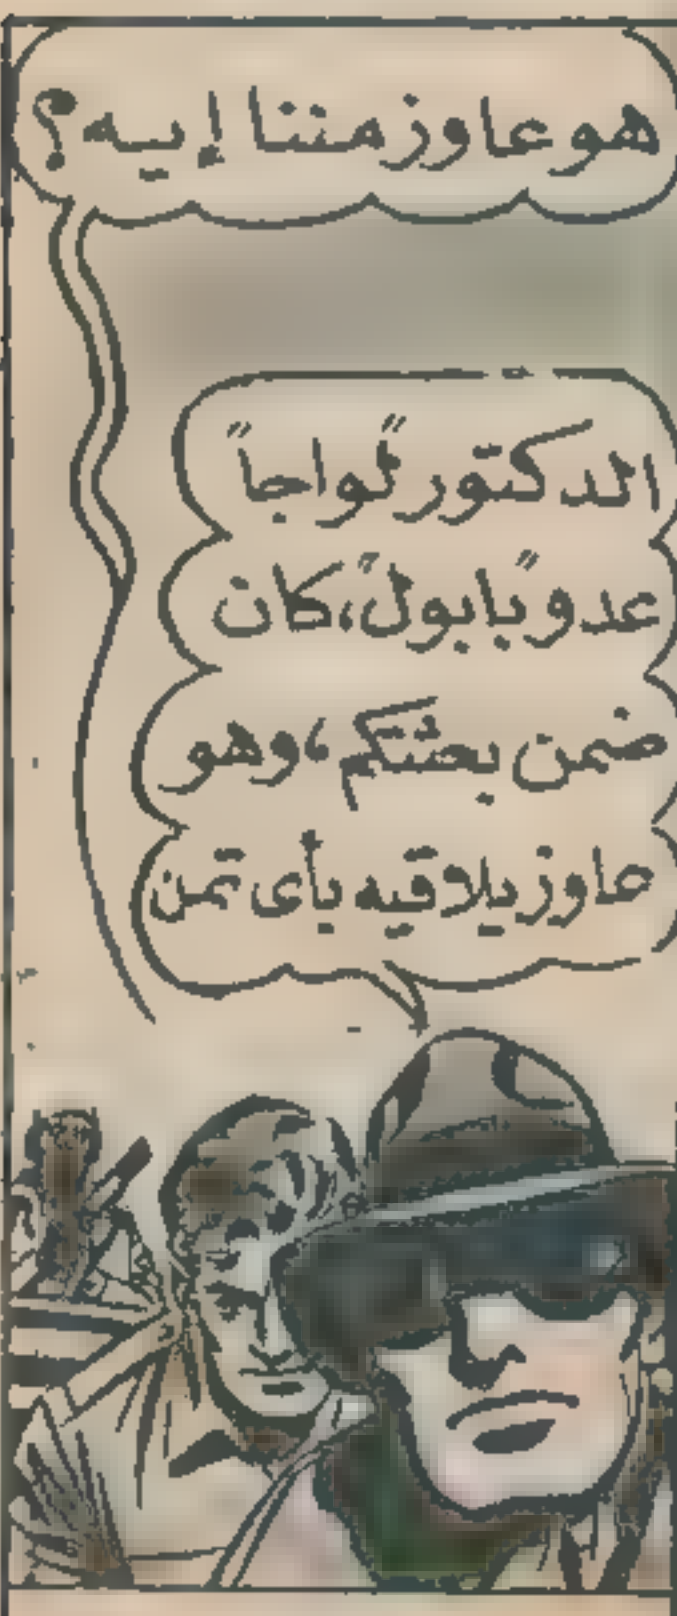 هو عاوز مننا إيه؟
الدكتور "لواجا"
عدو "بابول"، كان
ضمن بعثتكم، وهو
عاوز يلاقيه بأى تمن